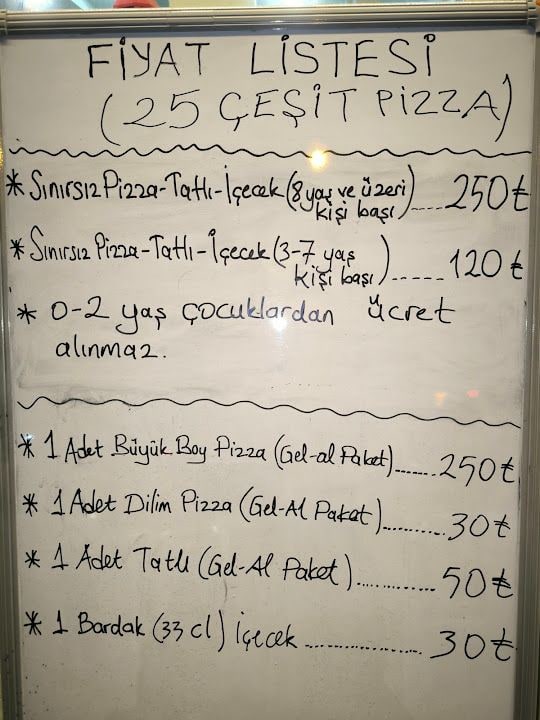 FİYAT LİSTESİ
(25 ÇEŞİT PİZZA)
* Sınırsız Pizza-Tatlı-İçecek (8 yaş ve üzeri kişi başı)......250₺
* Sınırsız Pizza-Tatlı-İçecek (3-7 yaş kişi başı)......120₺
* 0-2 yaş çocuklardan ücret
alınmaz.
* 1 Adet Büyük Boy Pizza (Gel-al Paket).......250₺
* 1 Adet Dilim Pizza (Gel-Al Paket)..........30₺
* 1 Adet Tatlı (Gel-Al Paket)............50₺
* 1 Bardak (33 cl) İçecek ..................30₺